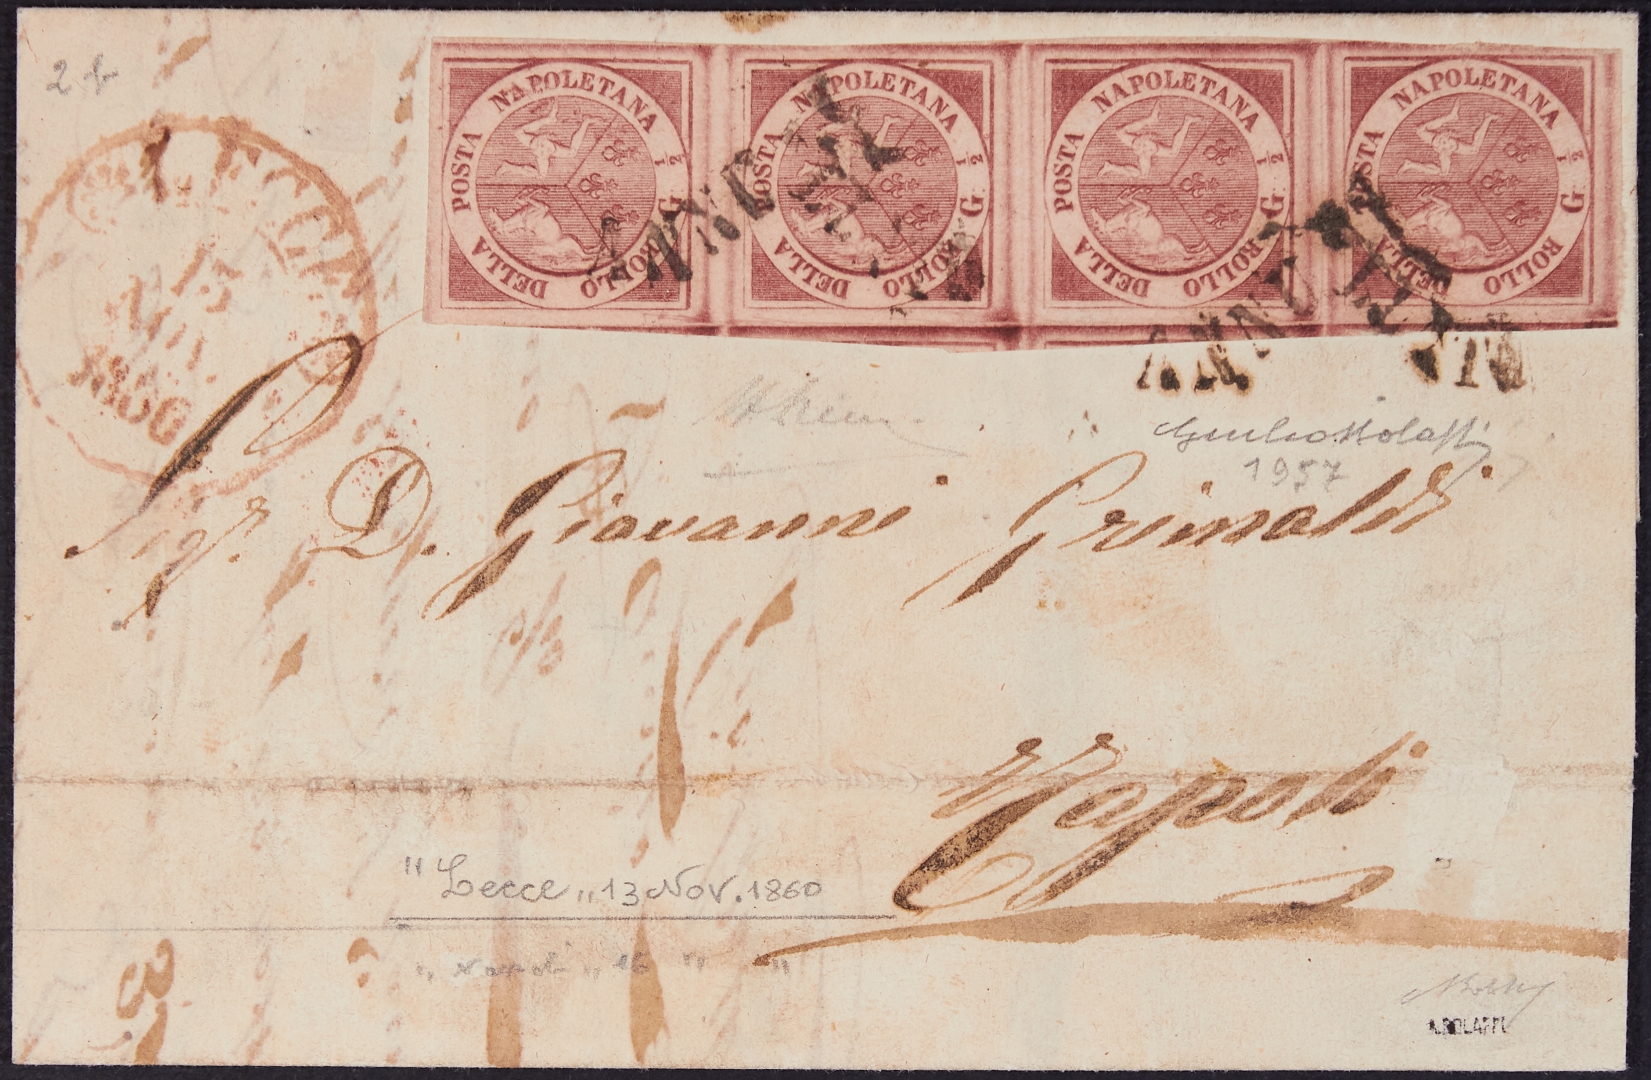 2 f
POSTA NAPOLETANA ½ G. DELLA BOLLO
POSTA NAPOLETANA ½ G. DELLA BOLLO
POSTA NAPOLETANA ½ G. DELLA BOLLO
POSTA NAPOLETANA ½ G. DELLA BOLLO
ANNULLATO
ANNULLATO
LECCE
13
NOV.
1860
Giulio Bolaffi
1957
Sigr. D. Giovanni Grimaldi
Napoli
"Lecce" 13 Nov. 1860
A. BOLAFFI